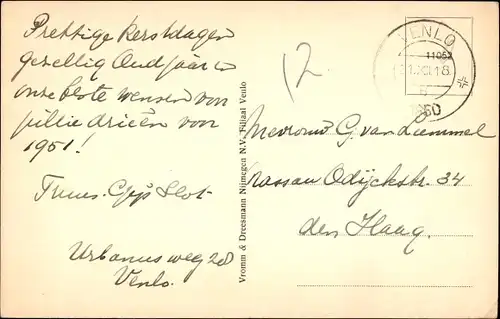 Prettige Kerstdagen
gezellig Oudjaar en
onze beste wensen voor
jullie drieën voor
1951!
Truus. Gijs Slot.
Urbanusweg 28
Venlo.
Vromm & Dreesmann Nijmegen N.V. Filiaal Venlo
12
VENLO
11052
1950
Mevrouw G. van Lammel
Nassau Odijckstr. 34
den Haag.